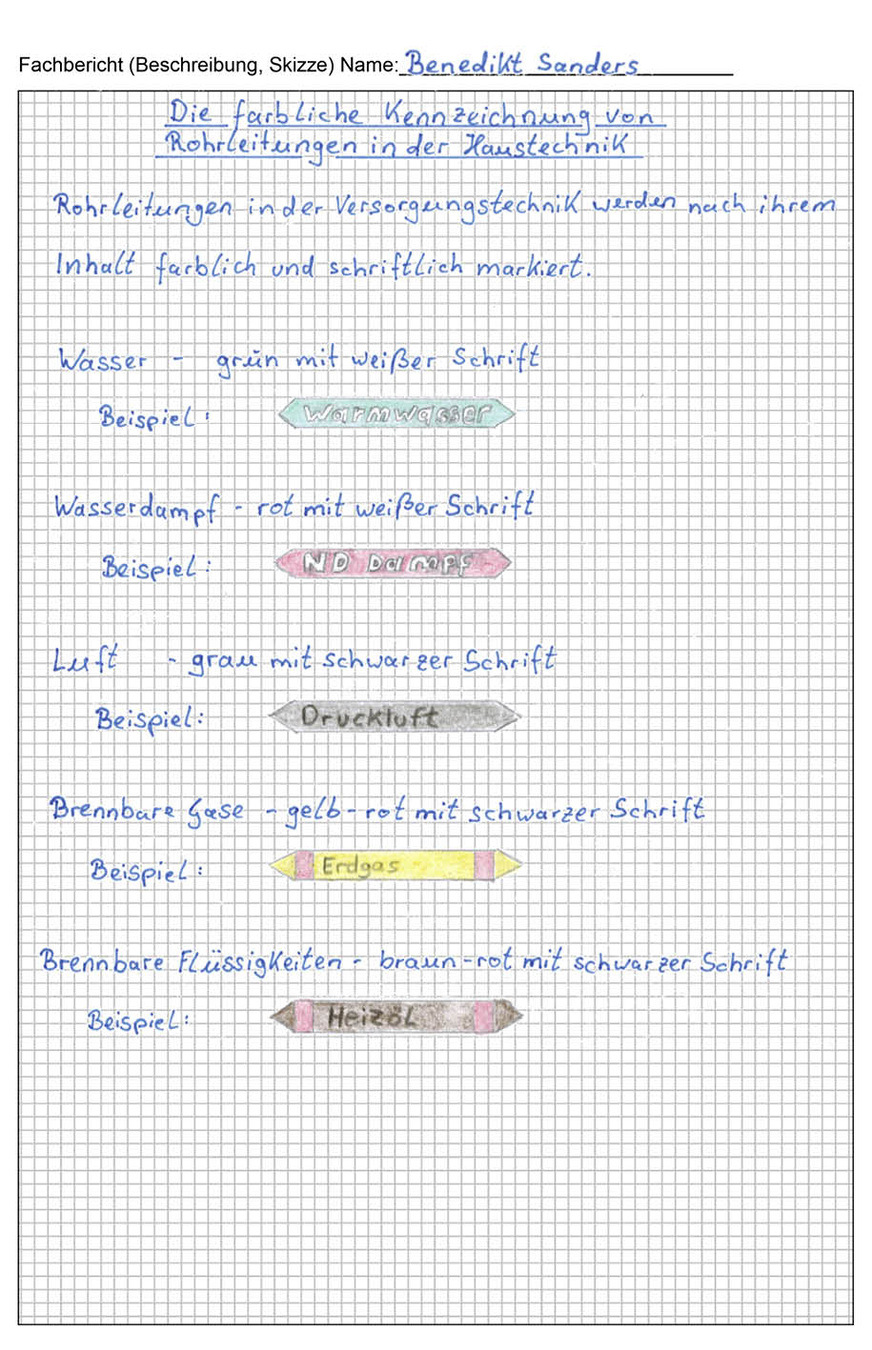 Fachbericht (Beschreibung, Skizze) Name: Benedikt Sanders
Die farbliche Kennzeichnung von
Rohrleitungen in der Haustechnik
Rohrleitungen in der Versorgungstechnik werden nach ihrem
Inhalt farblich und schriftlich markiert.
Wasser - grün mit weißer Schrift
Beispiel: Warmwasser
Wasserdampf - rot mit weißer Schrift
Beispiel: ND Dampf
Luft - grau mit schwarzer Schrift
Beispiel: Druckluft
Brennbare Gase - gelb-rot mit schwarzer Schrift
Beispiel: Erdgas
Brennbare Flüssigkeiten - braun-rot mit schwarzer Schrift
Beispiel: Heizöl